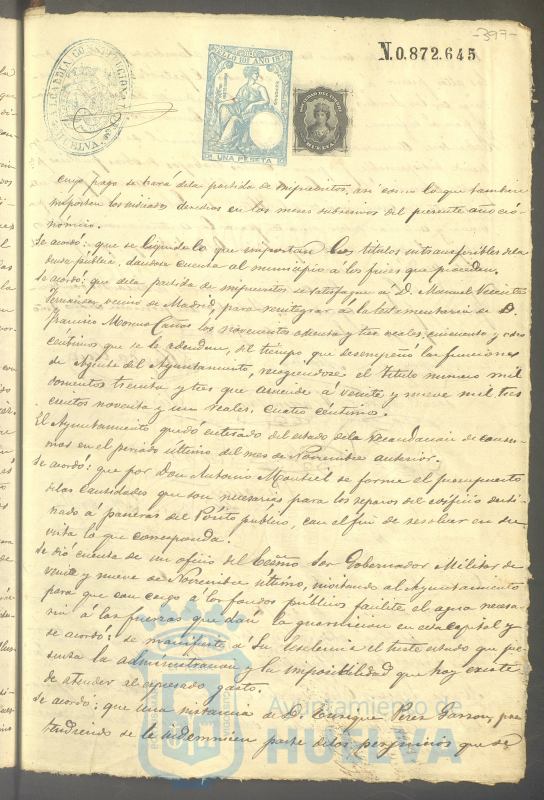 -397-
N.0.872.645
ALCALDIA CONSTITUCIONAL
HUELVA
SELLO 10º AÑO 187
UNA PESETA
HUELVA
cuyo pago se hará de la partida de imprevistos, asi como lo que tambien
importen los indicados derechos en los meses subsesivos del presente año eco-
nómico.
Se acordó: que se liquide lo que importan los titulos intransferibles de la
deuda publica, dandose cuenta al municipio a los fines que procedan.
Se acordó: que de la partida de imprevistos se satisfagan á D. Manuel Vicente
Fernandez vecino de Madrid, para reintegrar á la testamentaria de D.
Francisco Moreno Cañas los novecientos ochenta y tres reales cincuenta y ocho
céntimos que se le adeudan, del tiempo que desempeñó las funciones
de Agente del Ayuntamiento, recogiendose el titulo numero mil
cuatrocientos treinta y tres que asciende á veinte y nueve mil tres
cientos noventa y un reales, cuatro céntimos.
El Ayuntamiento quedó enterado del estado de la recaudacion de consu-
mos en el periodo último del mes de Noviembre anterior.
Se acordó: que por Don Antonio Montiel se forme el presupuesto
de las cantidades que son necesarias para los reparos del edificio desti-
nado a paneras del Pósito público, con el fin de resolver en su
vista lo que corresponda.
Se dió cuenta de un oficio del Ecsmo Sor Gobernador Militar de
veinte y nueve de Noviembre último, invitando al Ayuntamiento
para que con cargo á los fondos públicos facilite el agua necesa-
ria á las fuerzas que dan la guarnicion en esta Capital y
se acordó: se manifieste á Su Escelencia el triste estado que pre-
senta la administracion y la imposibilidad que hay existe
de atender al espresado gasto.
Se acordó: que una instancia de D. Enrique Perez pre-
tendiendo se le indemnicen parte de los perjuicios que se
Ayuntamiento de
HUELVA